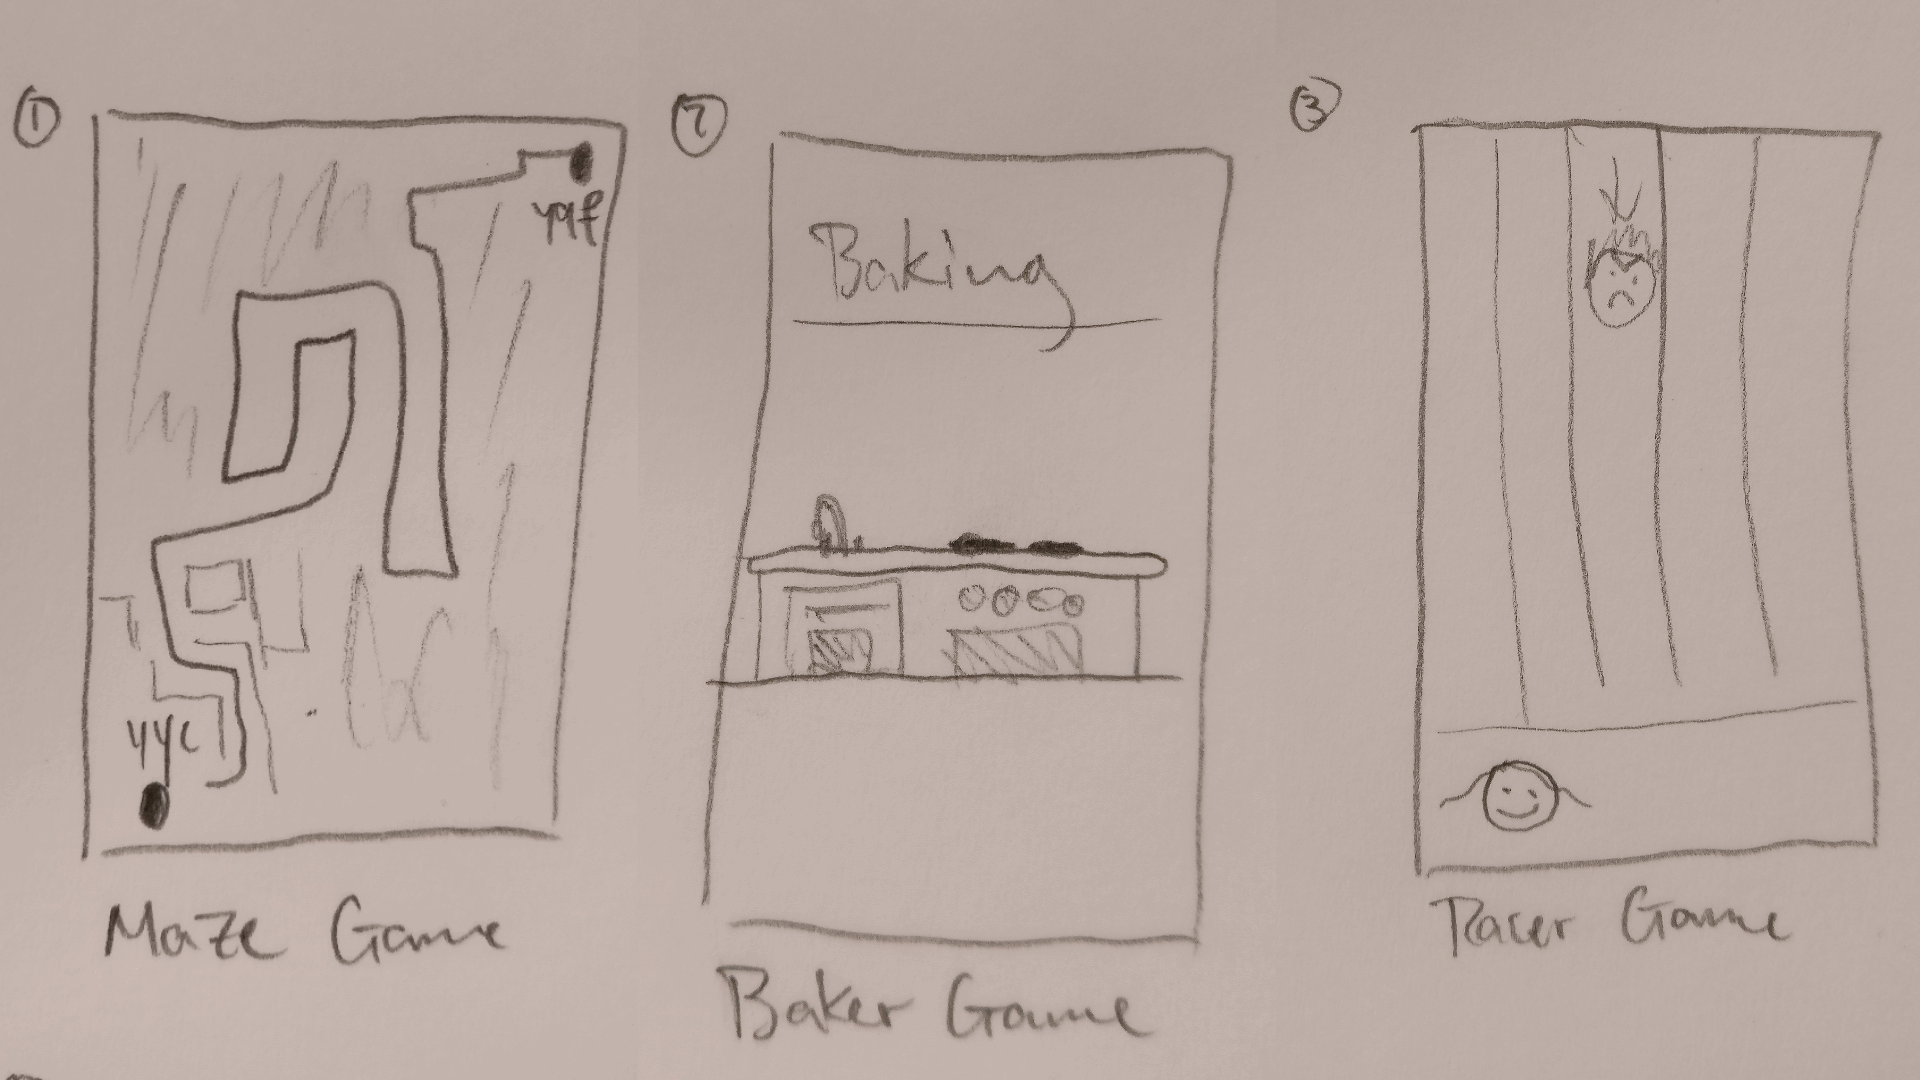 1
yqf
yyc
Maze Game
2
Baking
Baker Game
3
Racer Game